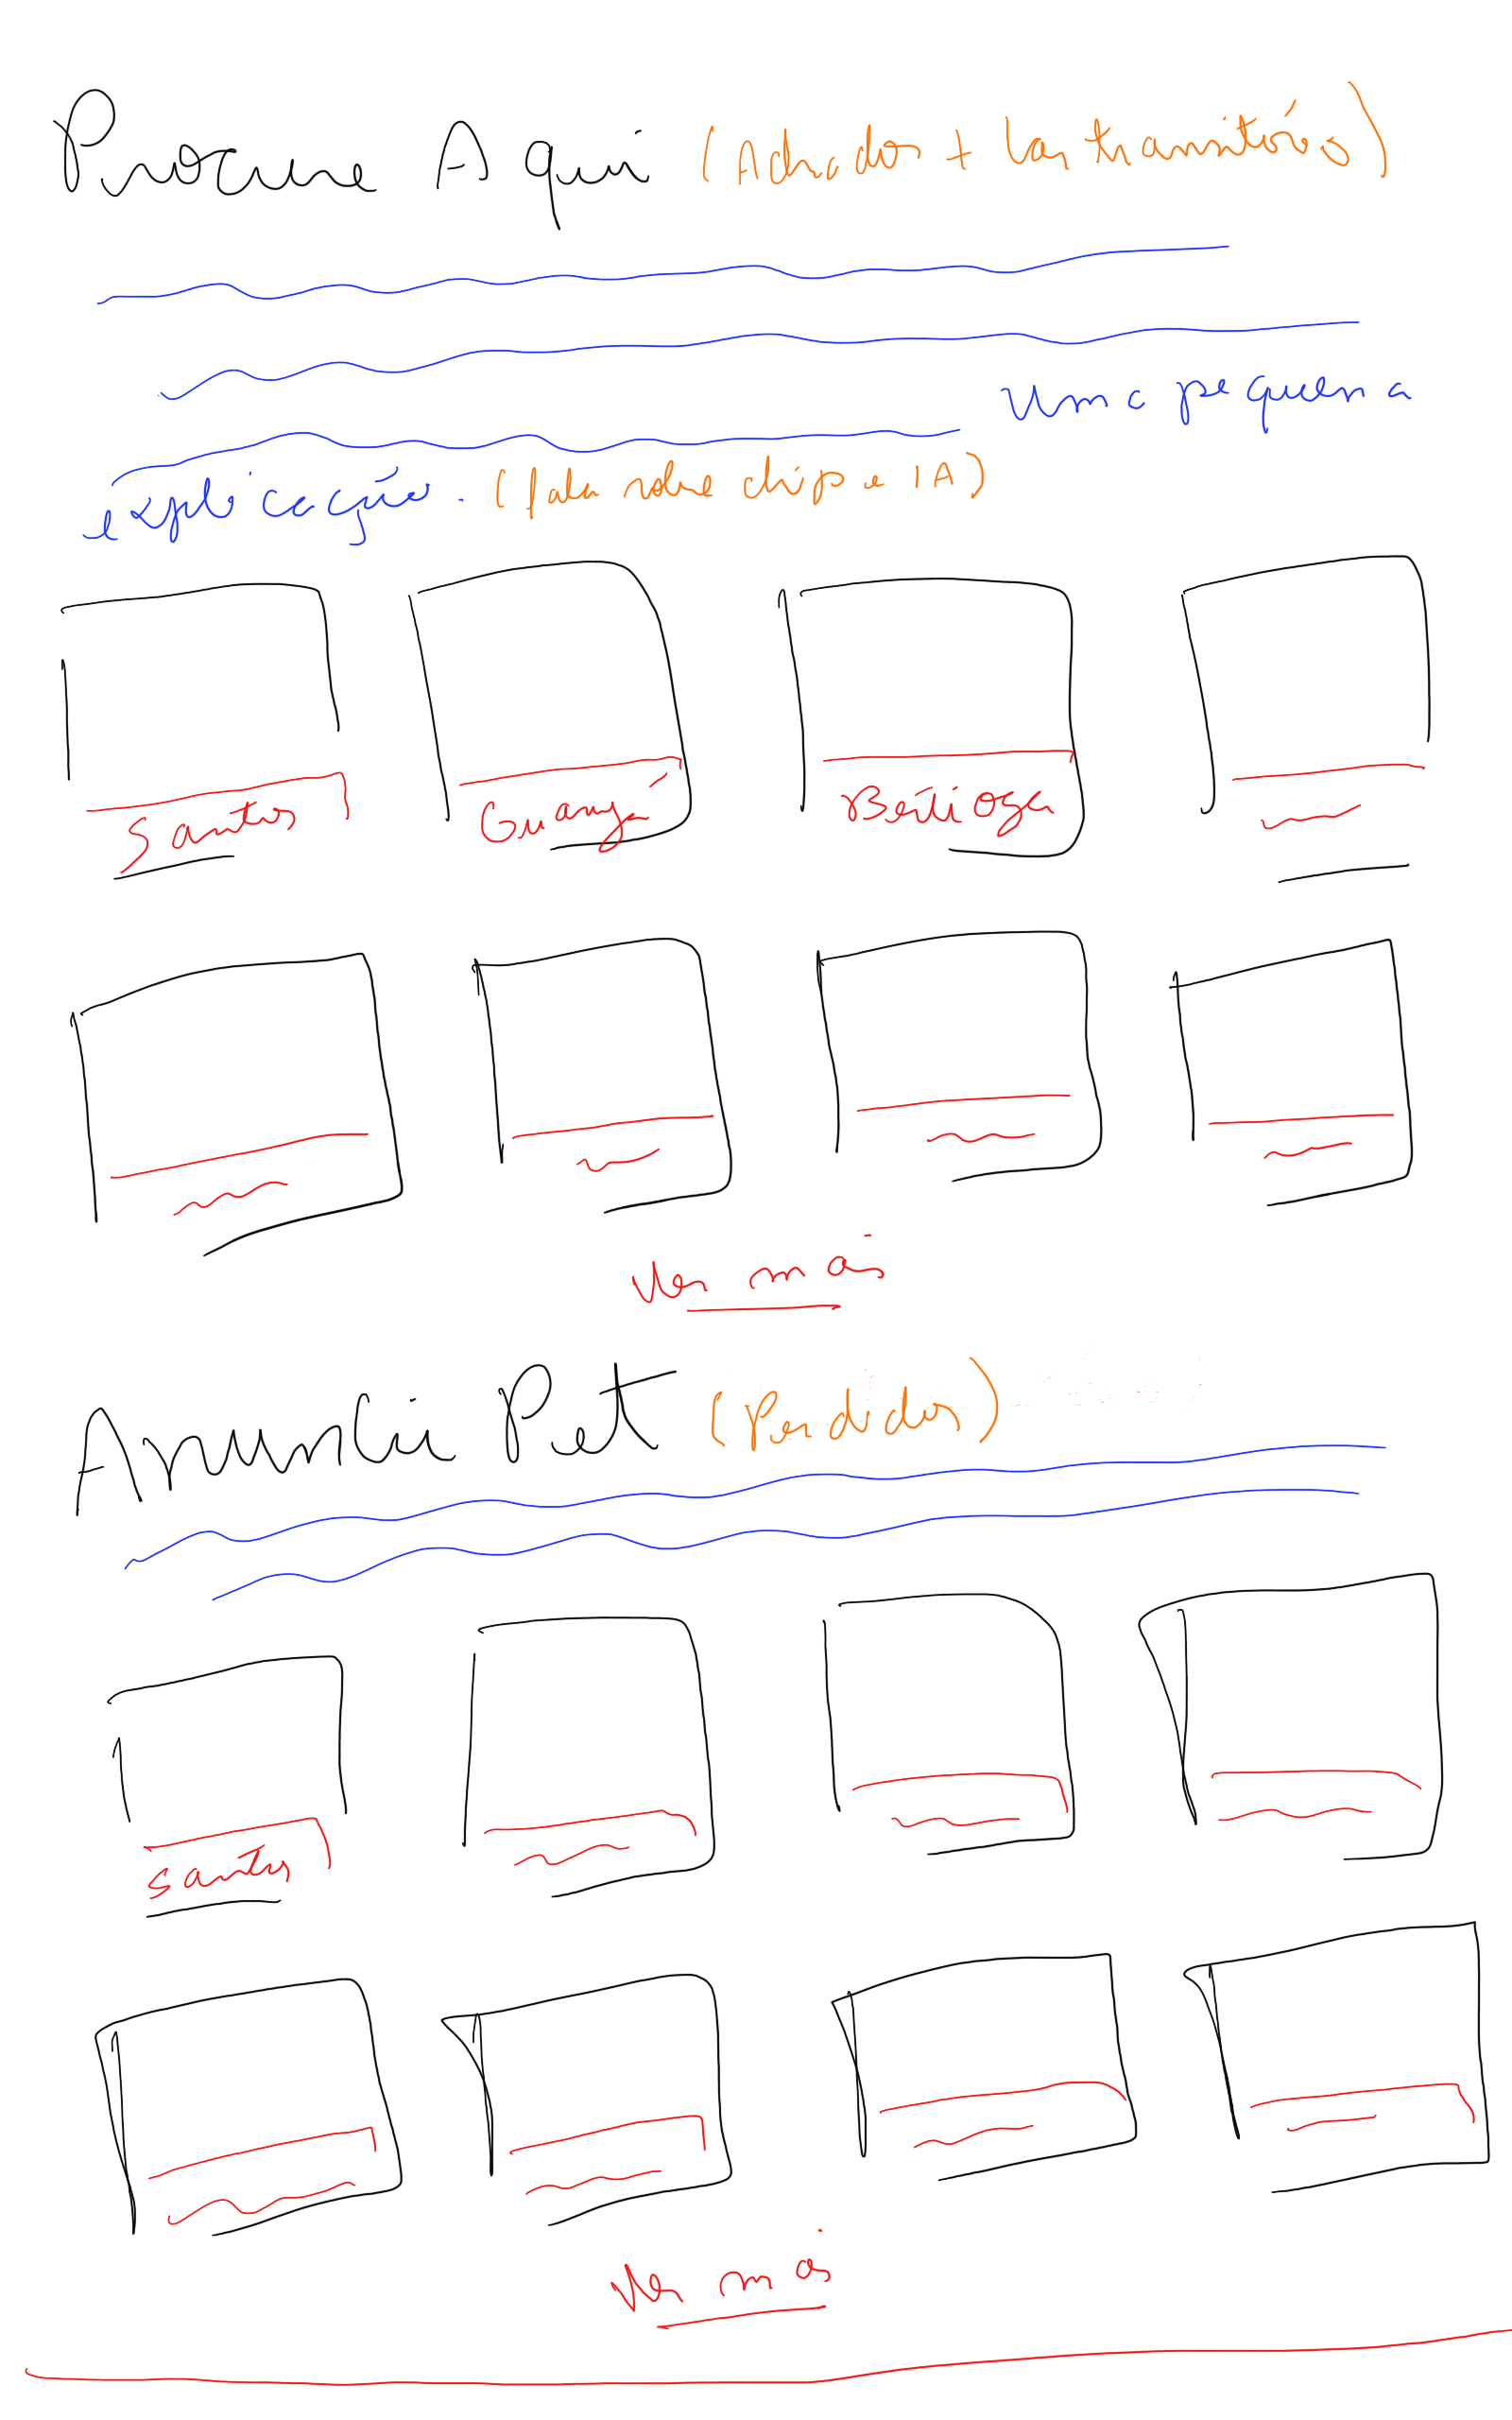 Procure Aqui (Achados + Lar transitório)
uma pequena
explicação. (fala sobre chip e IA)
Santos Guarujá Bertioga
Ver mais
Anuncie Pet (Perdidos)
Santos
Ver mais